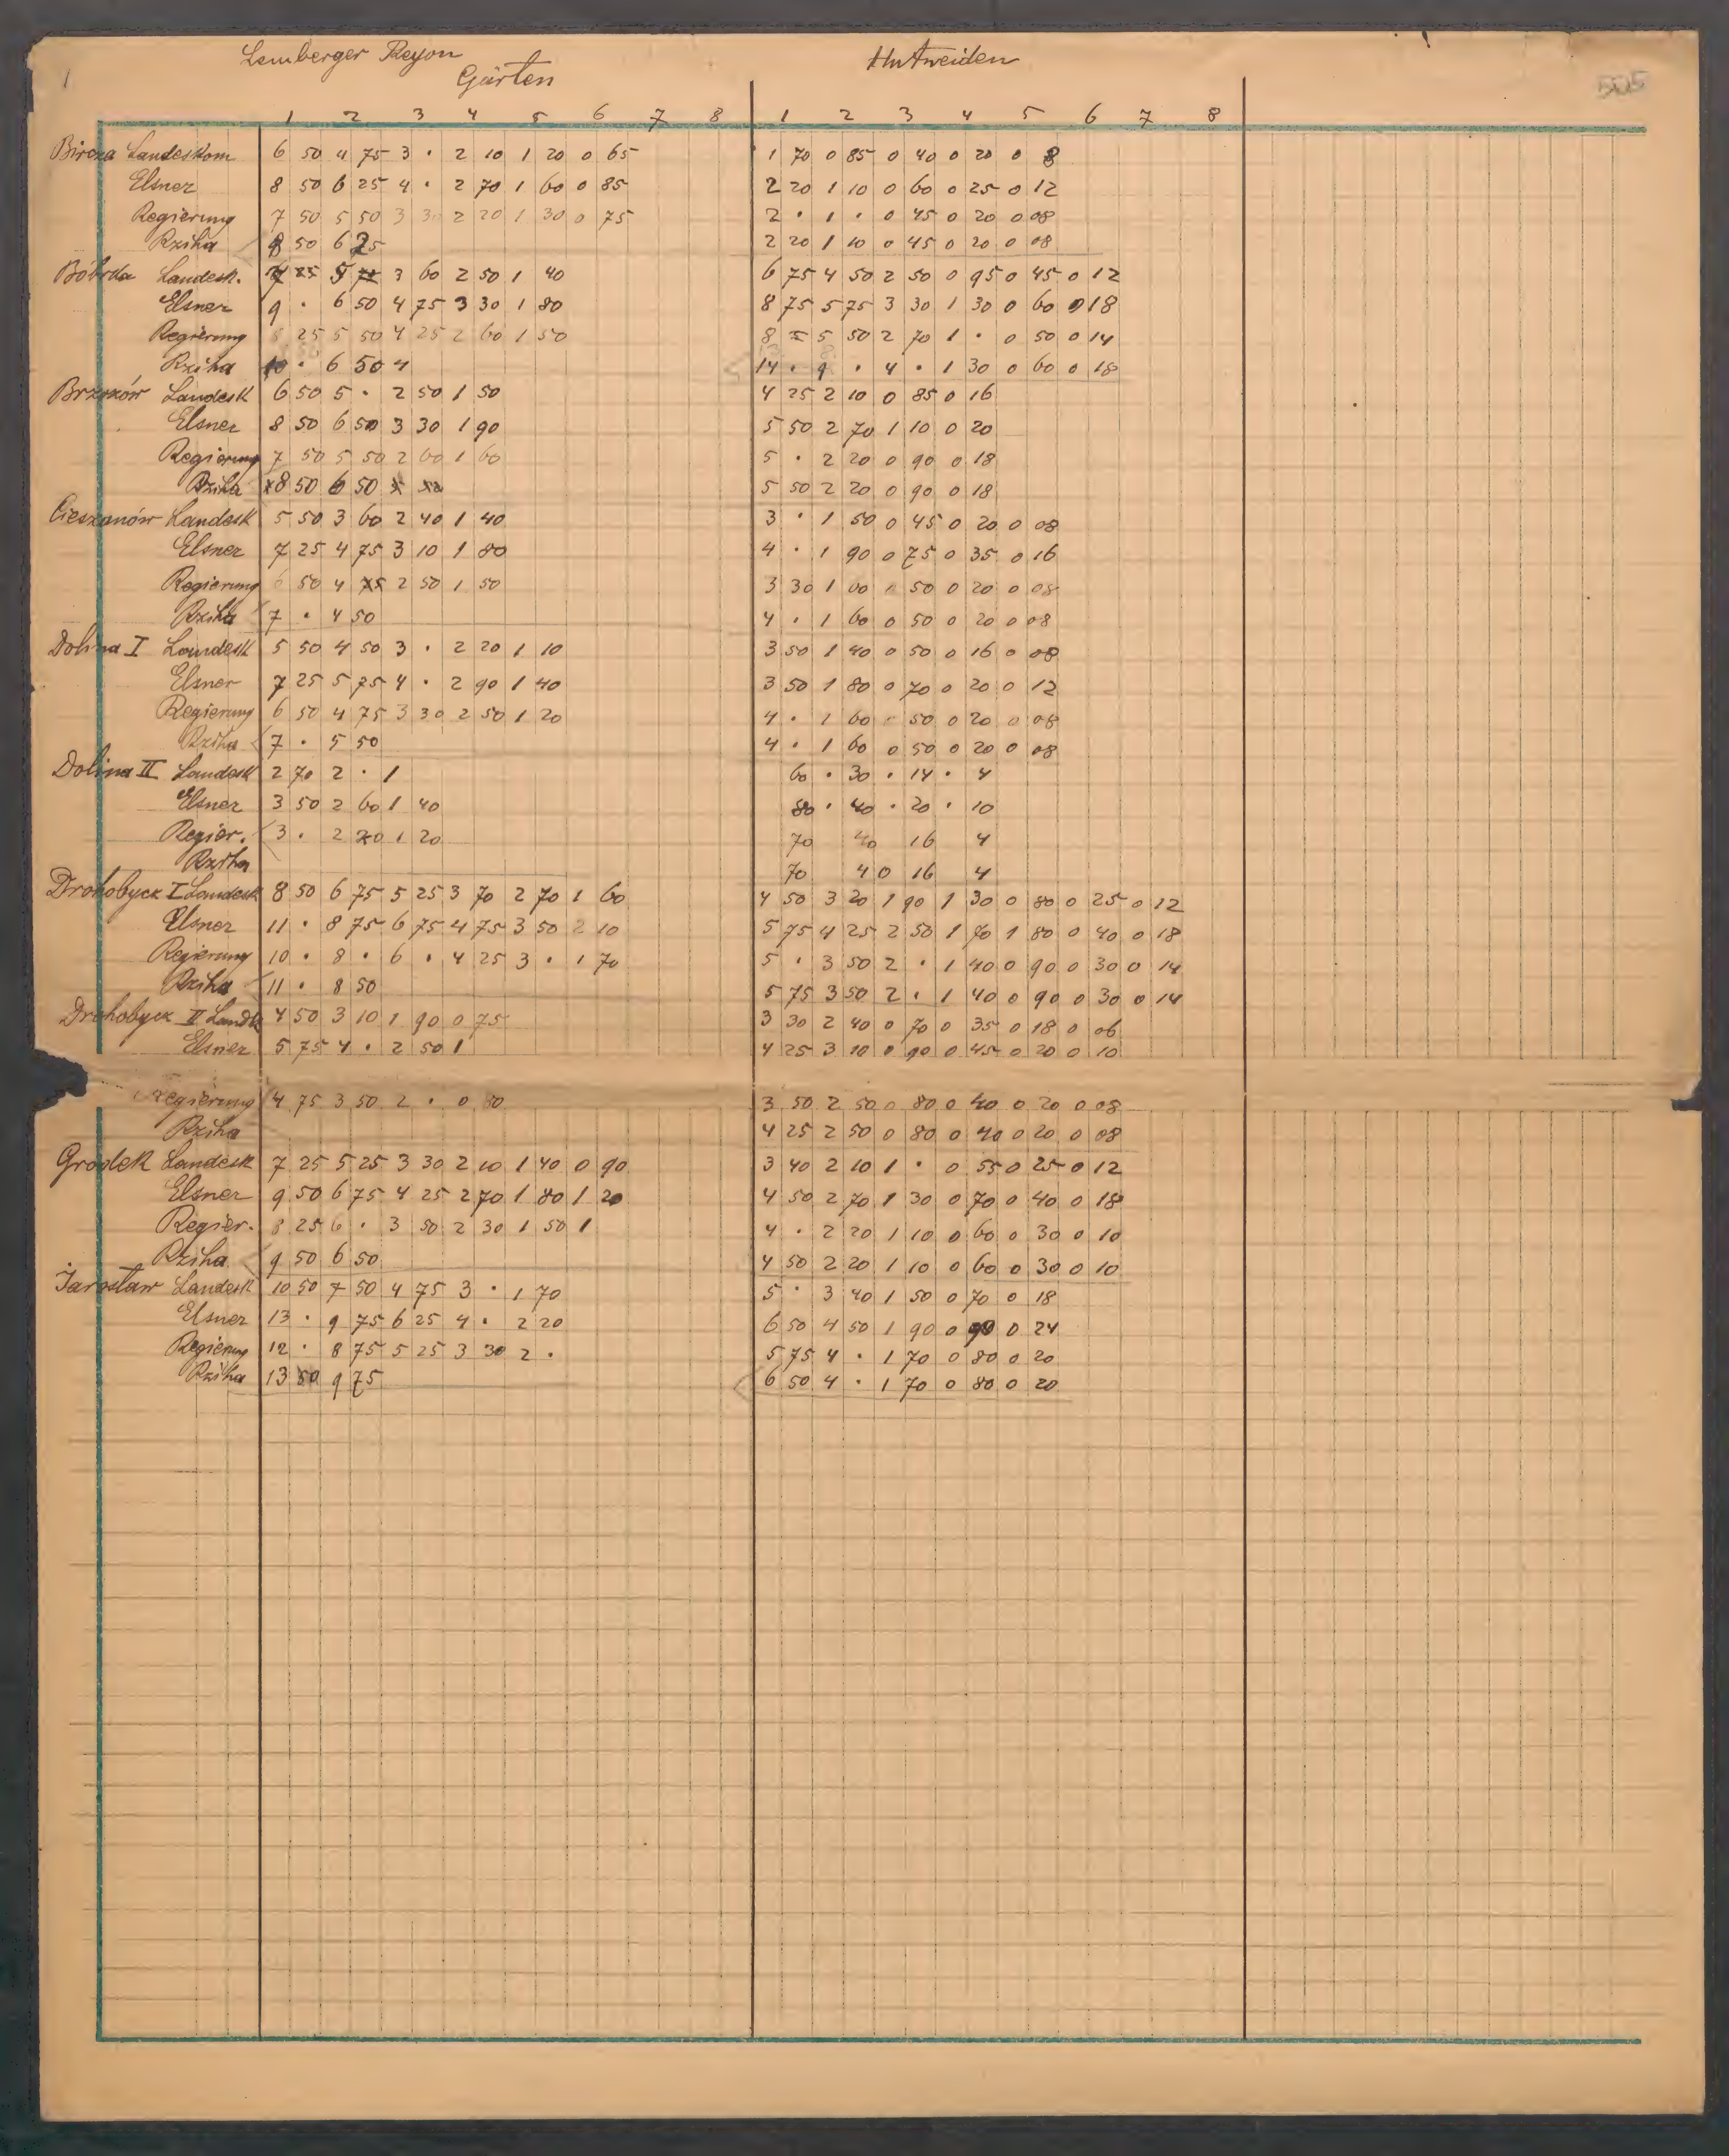 Lemberger Reyon
1 Gärten Hutweiden 505
1 2 3 4 5 6 7 8 1 2 3 4 5 6 7 8
Bircza Landeskom 6 50 4 75 3 · 2 10 1 20 0 65 1 70 0 85 0 40 0 20 0 8
Elsner 8 50 6 25 4 · 2 70 1 60 0 85 2 20 1 10 0 60 0 25 0 12
Regierung 7 50 5 50 3 30 2 20 1 30 0 75 2 · 1 · 0 45 0 20 0 08
Rziha 8 50 6 25 2 20 1 10 0 45 0 20 0 08
Bóbrka Landesk. 5 3 60 2 50 1 40 6 75 4 50 2 50 0 95 0 45 0 12
Elsner 9 · 6 50 4 75 3 30 1 80 8 75 5 75 3 30 1 30 0 60 0 18
Regierung 8 25 5 50 4 25 2 60 1 50 8 5 50 2 70 1 · 0 50 0 14
Rziha 10 · 6 50 4 14 · 9 · 4 · 1 30 0 60 0 18
Brzozów Landesk 6 50 5 · 2 50 1 50 4 25 2 10 0 85 0 16
Elsner 8 50 6 50 3 30 1 90 5 50 2 70 1 10 0 20
Regierung 7 50 5 50 2 60 1 60 5 · 2 20 0 90 0 18
Rziha 8 50 6 50 5 50 2 20 0 90 0 18
Cieszanów Landesk 5 50 3 60 2 40 1 40 3 · 1 50 0 45 0 20 0 08
Elsner 7 25 4 75 3 10 1 80 4 · 1 90 0 75 0 35 0 16
Regierung 6 50 4 2 50 1 50 3 30 1 60 0 50 0 20 0 08
Rziha 7 · 4 50 4 · 1 60 0 50 0 20 0 08
Dolina I Landesk 5 50 4 50 3 · 2 20 1 10 3 50 1 40 0 50 0 16 0 08
Elsner 7 25 5 75 4 · 2 90 1 40 3 50 1 80 0 70 0 20 0 12
Regierung 6 50 4 75 3 30 2 50 1 20 4 · 1 60 0 50 0 20 0 08
Rziha 7 · 5 50 4 · 1 60 0 50 0 20 0 08
Dolina II Landesk 2 70 2 · 1 60 · 30 · 14 · 4
Elsner 3 50 2 60 1 40 80 · 40 · 20 · 10
Regier. 3 · 2 20 1 20 70 40 16 4
Rziha 70 40 16 4
Drohobycz I Landesk 8 50 6 75 5 25 3 70 2 70 1 60 4 50 3 20 1 90 1 30 0 80 0 25 0 12
Elsner 11 · 8 75 6 75 4 75 3 50 2 10 5 75 4 25 2 50 1 70 1 80 0 40 0 18
Regierung 10 · 8 · 6 · 4 25 3 · 1 70 5 · 3 50 2 · 1 40 0 90 0 30 0 14
Rziha 11 · 8 50 5 75 3 50 2 · 1 40 0 90 0 30 0 14
Drohobycz II Landk 4 50 3 10 1 90 0 75 3 30 2 40 0 70 0 35 0 18 0 06
Elsner 5 75 4 · 2 50 1 4 25 3 10 0 90 0 45 0 20 0 10
Regierung 4 75 3 50 2 · 0 80 3 50 2 50 0 80 0 40 0 20 0 08
Rziha 4 25 2 50 0 80 0 40 0 20 0 08
Grodek Landesk 7 25 5 25 3 30 2 10 1 40 0 90 3 40 2 10 1 · 0 55 0 25 0 12
Elsner 9 50 6 75 4 25 2 70 1 80 1 20 4 50 2 70 1 30 0 70 0 40 0 18
Regier. 8 25 6 · 3 50 2 30 1 50 1 4 · 2 20 1 10 0 60 0 30 0 10
Rziha 9 50 6 50 4 50 2 20 1 10 0 60 0 30 0 10
Jarosław Landesk 10 50 7 50 4 75 3 · 1 70 5 · 3 40 1 50 0 70 0 18
Elsner 13 · 9 75 6 25 4 · 2 20 6 50 4 50 1 90 0 90 0 24
Regierung 12 · 8 75 5 25 3 30 2 · 5 75 4 · 1 70 0 80 0 20
Rziha 13 50 9 75 6 50 4 · 1 70 0 80 0 20